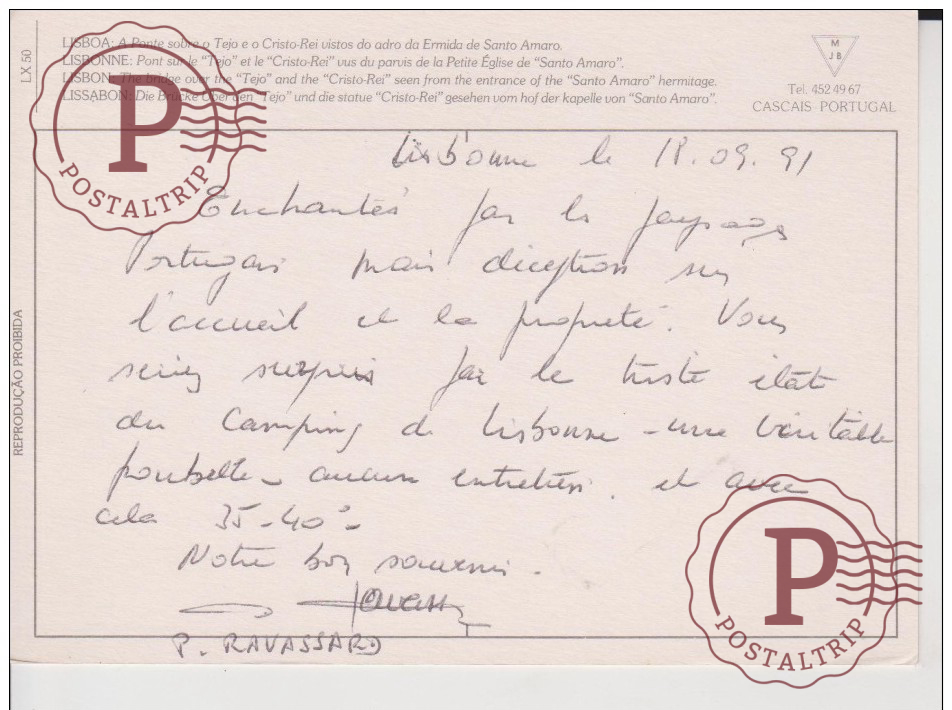 LISBOA: A Ponte sobre o Tejo e o Cristo-Rei vistos do adro da Ermida de Santo Amaro.
LISBONNE: Pont sur le "Tejo" et le "Cristo-Rei" vus du parvis de la Petite Église de "Santo Amaro".
LISBON: The bridge over the "Tejo" and the "Cristo-Rei" seen from the entrance of the "Santo Amaro" hermitage.
LISSABON: Die Brücke über den "Tejo" und die statue "Cristo-Rei" gesehen vom hof der kapelle von "Santo Amaro".
LX 50
M
J B
Tel. 452 49 67
CASCAIS - PORTUGAL
REPRODUÇÃO PROIBIDA
Lisbonne le 18.09.91
Enchantés par les paysages
Portugais mais déception sur
l'accueil et la propreté. Vous
seriez surpris par le triste état
du Camping de Lisbonne - une véritable
poubelle - aucun entretien. et avec
cela 35-40° -
Notre bon souvenir.
P. RAVASSARD
P
POSTALTRIP
P
POSTALTRIP